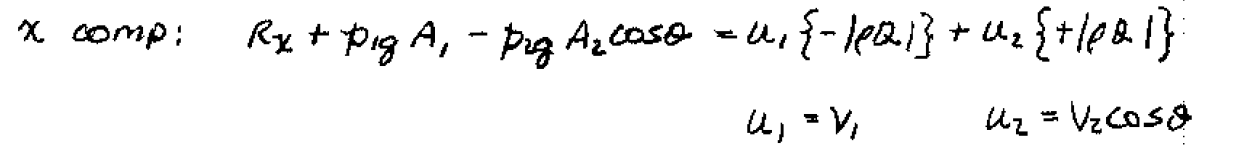 x comp: Rx + p1g A1 - p2g A2 cosθ = u1 {-|ρQ|} + u2 {+|ρQ|}
u1 = V1 u2 = V2 cosθ